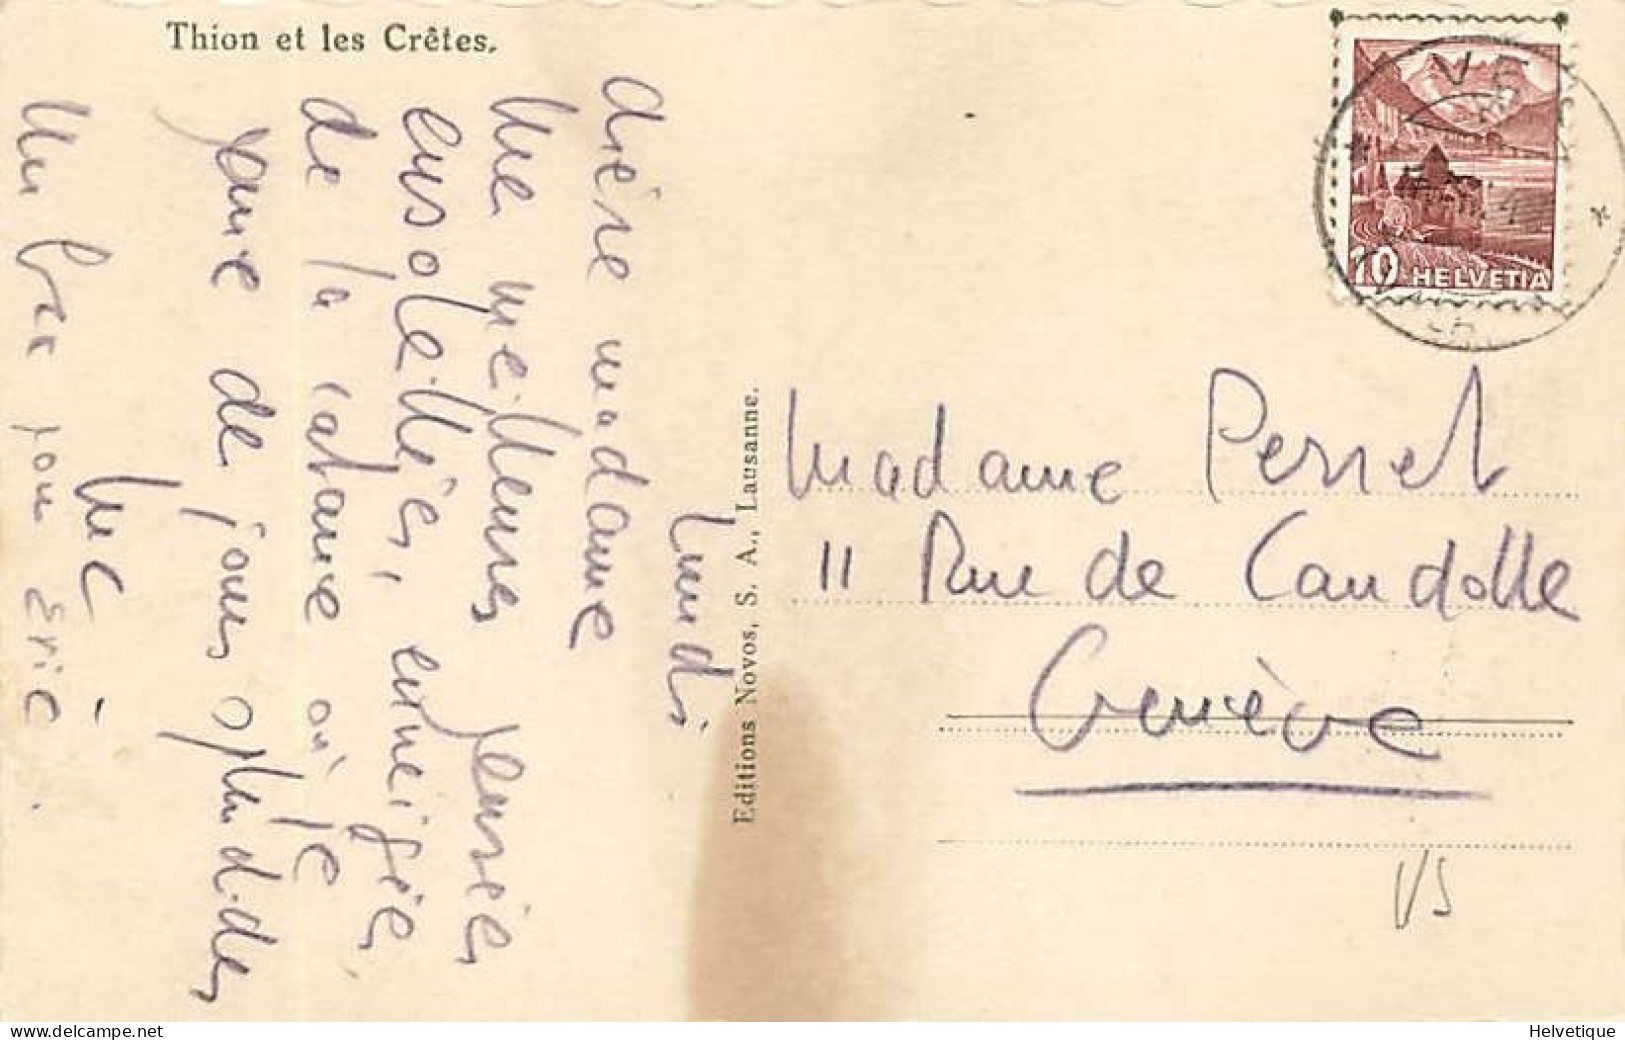 Thion et les Crêtes.
Lundi
chère madame
Une meilleures pensées
ensoleillées, enneigée,
de la cabane où je
jouie de jours splendides
Luc
Un bec pou Eric.
Editions Novos, S. A., Lausanne.
10 HELVETIA
Madame Perret
11 Rue de Candolle
Genève
VS
www.delcampe.net
Helvetique